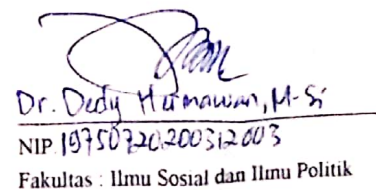 Dr. Dedy Hermawan, M.Si
NIP 19750720200312003
Fakultas : Ilmu Sosial dan Ilmu Politik